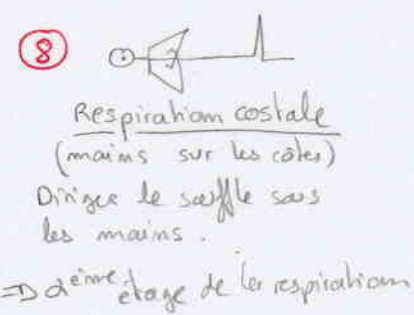 8
Respiration costale
(mains sur les côtes)
Diriger le souffle sous
les mains.
=> 2ème étage de la respiration